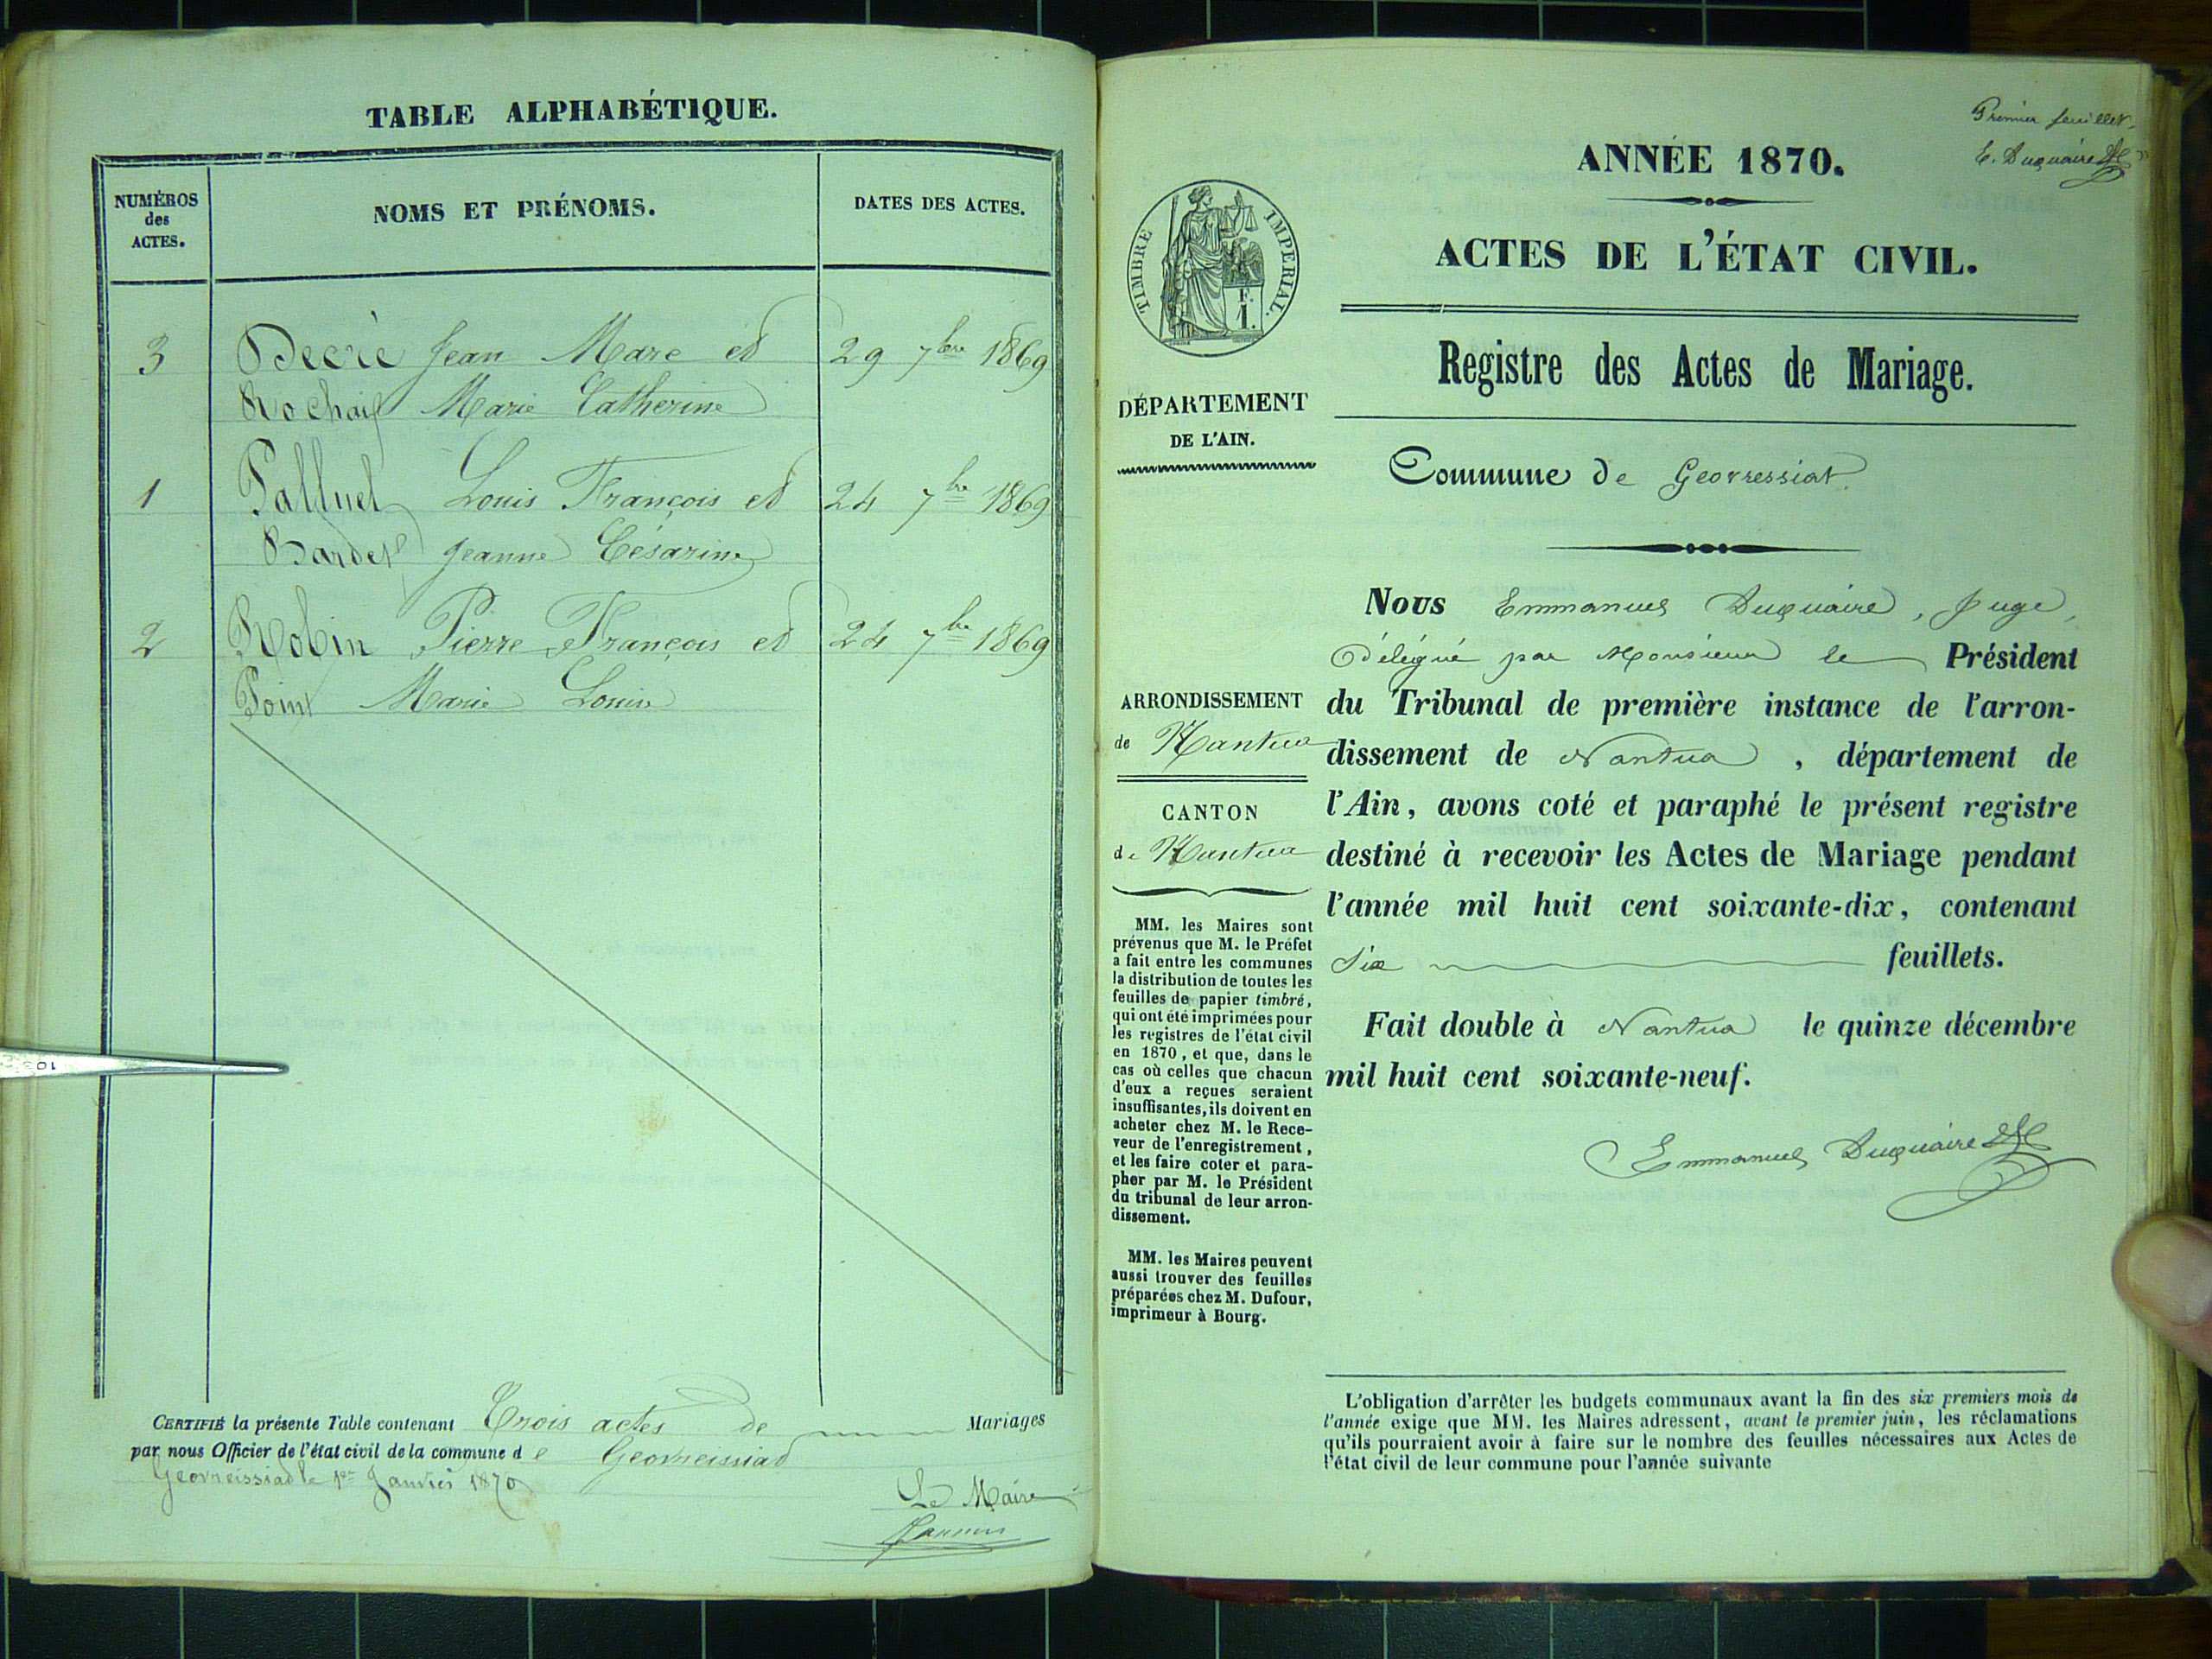 TABLE ALPHABÉTIQUE.
NUMÉROS
des
ACTES.
NOMS ET PRÉNOMS.
DATES DES ACTES.
3 Decré Jean Marc et 29 7bre 1869
Rochaix Marie Catherine
1 Palluel Louis François et 24 7bre 1869
Bardet Jeanne Césarine
2 Robin Pierre François et 24 7bre 1869
Point Marie Louise
CERTIFIÉ la présente Table contenant Trois actes de Mariages
par nous Officier de l'état civil de la commune de Geovreissiad
Geovreissiad le 1er Janvier 1870
Le Maire
Premier feuillet.
E. Duquaire
ANNÉE 1870.
ACTES DE L'ÉTAT CIVIL.
Registre des Actes de Mariage.
Commune de Geovressiat.
TIMBRE IMPÉRIAL.
1 F.
DÉPARTEMENT
DE L'AIN.
ARRONDISSEMENT
de Nantua
CANTON
de Nantua
MM. les Maires sont
prévenus que M. le Préfet
a fait entre les communes
la distribution de toutes les
feuilles de papier timbré,
qui ont été imprimées pour
les registres de l'état civil
en 1870, et que, dans le
cas où celles que chacun
d'eux a reçues seraient
insuffisantes, ils doivent en
acheter chez M. le Rece-
veur de l'enregistrement,
et les faire coter et para-
pher par M. le Président
du tribunal de leur arron-
dissement.
MM. les Maires peuvent
aussi trouver des feuilles
préparées chez M. Dufour,
imprimeur à Bourg.
Nous Emmanuel Duquaire, Juge,
Délégué par Monsieur le Président
du Tribunal de première instance de l'arron-
dissement de Nantua, département de
l'Ain, avons coté et paraphé le présent registre
destiné à recevoir les Actes de Mariage pendant
l'année mil huit cent soixante-dix, contenant
six feuillets.
Fait double à Nantua le quinze décembre
mil huit cent soixante-neuf.
Emmanuel Duquaire
L'obligation d'arrêter les budgets communaux avant la fin des six premiers mois de
l'année exige que MM. les Maires adressent, avant le premier juin, les réclamations
qu'ils pourraient avoir à faire sur le nombre des feuilles nécessaires aux Actes de
l'état civil de leur commune pour l'année suivante
103